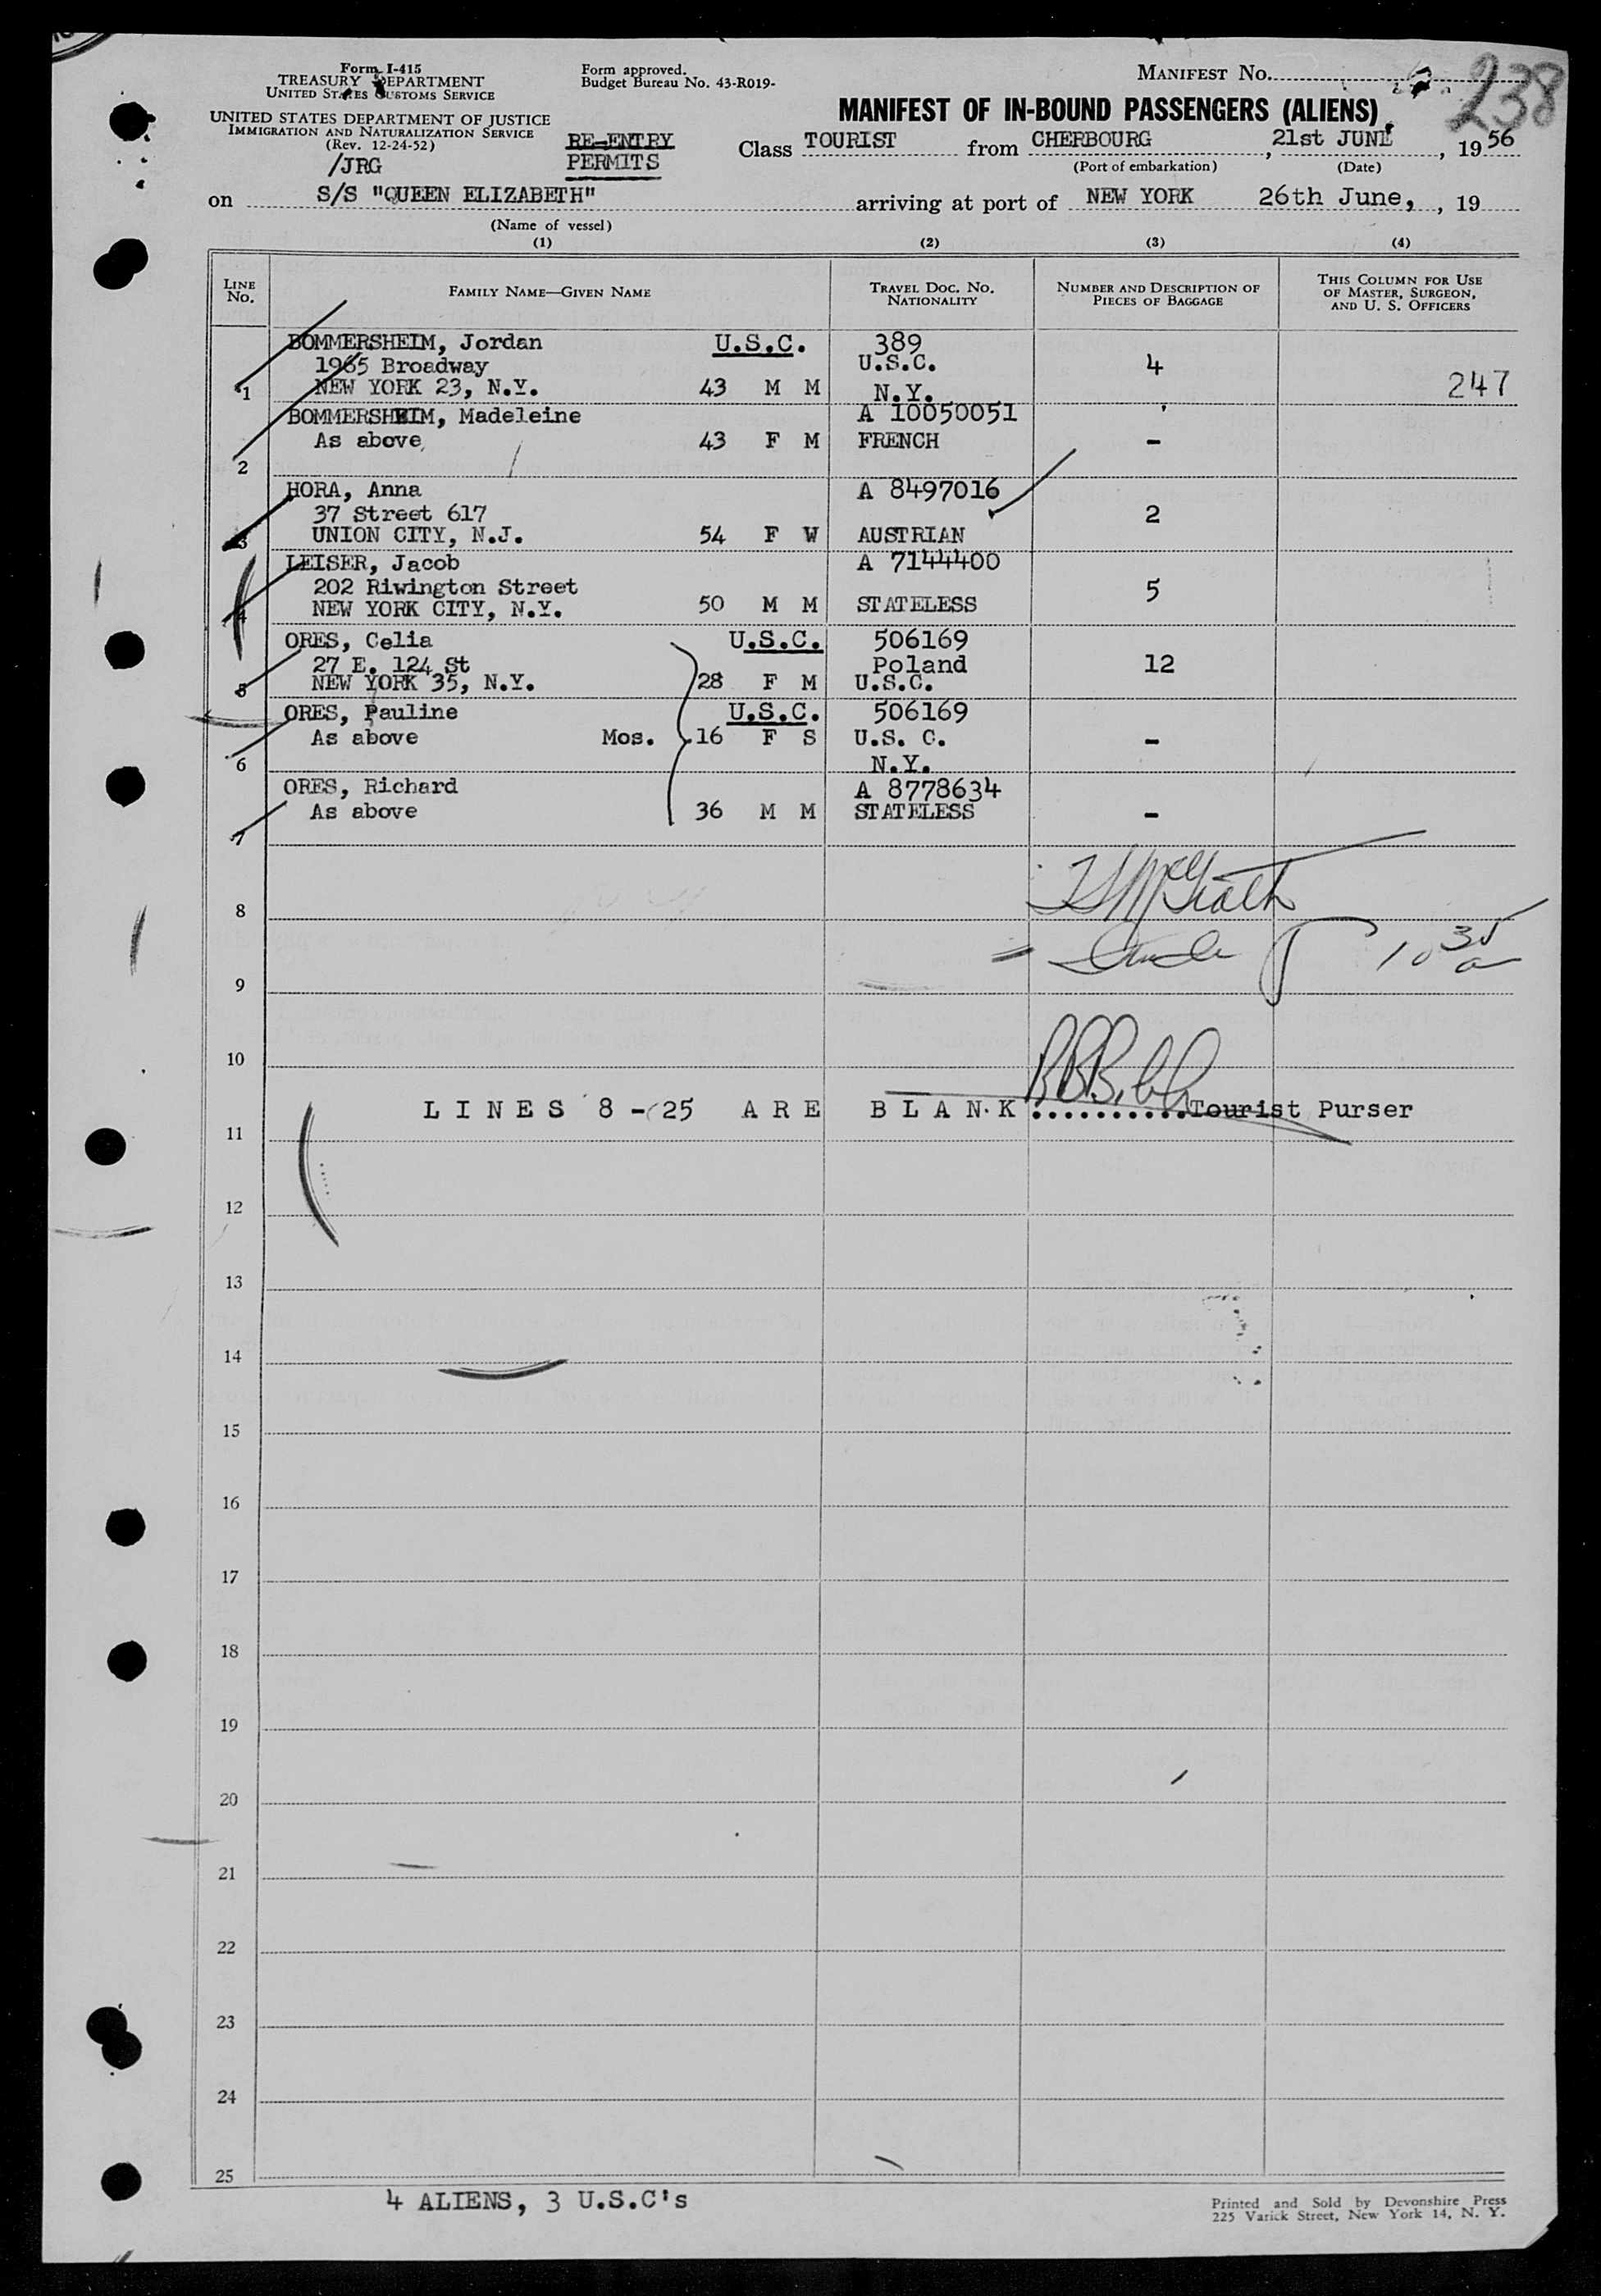 Form I-415
TREASURY DEPARTMENT
UNITED STATES CUSTOMS SERVICE
UNITED STATES DEPARTMENT OF JUSTICE
IMMIGRATION AND NATURALIZATION SERVICE
(Rev. 12-24-52)
/JRG
Form approved.
Budget Bureau No. 43-R019-
RE-ENTRY
PERMITS
MANIFEST NO.
238
MANIFEST OF IN-BOUND PASSENGERS (ALIENS)
Class TOURIST from CHERBOURG, 21st JUNE, 1956
(Port of embarkation) (Date)
on S/S "QUEEN ELIZABETH" arriving at port of NEW YORK 26th June, , 19
(Name of vessel)
(1) (2) (3) (4)
LINE NO. FAMILY NAME—GIVEN NAME TRAVEL DOC. NO. NATIONALITY NUMBER AND DESCRIPTION OF PIECES OF BAGGAGE THIS COLUMN FOR USE OF MASTER, SURGEON, AND U. S. OFFICERS
BOMMERSHEIM, Jordan U.S.C. 389
1965 Broadway U.S.C. 4
1 NEW YORK 23, N.Y. 43 M M N.Y. 247
BOMMERSHEIM, Madeleine A 10050051
As above 43 F M FRENCH -
2
HORA, Anna A 8497016
37 Street 617 2
3 UNION CITY, N.J. 54 F W AUSTRIAN
LEISER, Jacob A 7144400
202 Riwington Street 5
4 NEW YORK CITY, N.Y. 50 M M STATELESS
ORES, Celia U.S.C. 506169
27 E. 124 St Poland 12
5 NEW YORK 35, N.Y. 28 F M U.S.C.
ORES, Pauline U.S.C. 506169
As above Mos. 16 F S U.S. C. -
6 N.Y.
ORES, Richard A 8778634
As above 36 M M STATELESS -
7
8
9
10 35 a
10
LINES 8 - 25 ARE BLANK ..........Tourist Purser
11
12
13
14
15
16
17
18
19
20
21
22
23
24
25
4 ALIENS, 3 U.S.C's
Printed and Sold by Devonshire Press
225 Varick Street, New York 14, N. Y.